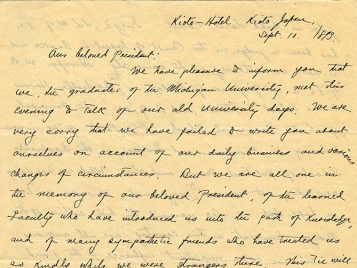 Kioto-Hotel Kioto Japan,
Sept. 10. 1893
Our beloved President:
We have pleasure to inform you that
we, the graduates of the Michigan University, met this
evening to talk of our old University days. We are
very sorry that we have failed to write you about
ourselves on account of our daily business and various
changes of circumstances. But we are all one in
the memory of our beloved President, of the learned
Faculty who have introduced us into the path of Knowledge,
and of many sympathetic friends who have treated us
so kindly while we were strangers there. This tie will